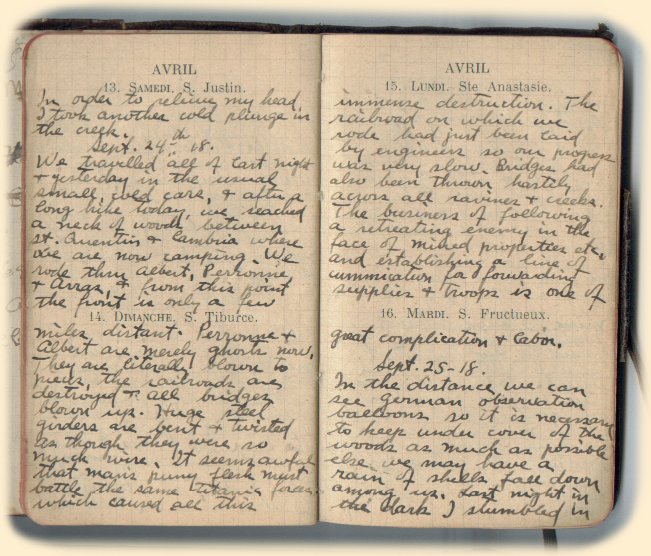 AVRIL
13. SAMEDI. S. Justin.
In order to relieve my head
I took another cold plunge in
the creek.
Sept. 24-th 18.
We travelled all of last night
& yesterday in the usual
small, cold cars, & after a
long hike today, we reached
a neck of woods between
St. Quentin & Cambria where
we are now camping. We
rode thru Albert, Perronne,
& Arras, & from this point
the front is only a few
14. DIMANCHE. S. Tiburce.
miles distant. Perronne &
Albert are merely ghosts now.
They are literally blown to
pieces, the railroads are
destroyed & all bridges
blown up. Huge steel
girders are bent & twisted
as though they were so
much wire. It seems awful
that man's puny flesh must
battle the same titanic forces
which caused all this
AVRIL
15. LUNDI. Ste Anastasie.
immense destruction. The
railroad on which we
rode had just been laid
by engineers so our progress
was very slow. Bridges had
also been thrown hastily
across all ravines & creeks.
The business of following
a retreating enemy in the
face of mined properties etc,
and establishing a line of
cummication for forwarding
supplies & troops is one of
16. MARDI. S. Fructueux.
great complication & labor.
Sept. 25-18.
In the distance we can
see german observation
balloons so it is necessary
to keep under cover of the
woods as much as possible
else we may have a
rain of shells fall down
among us. Last night in
the dark I stumbled in